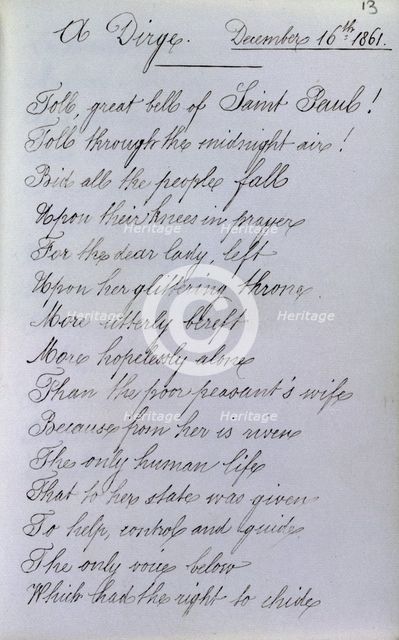 13
A Dirge. December 16th 1861.
Toll, great bell of Saint Paul!
Toll through the midnight air!
Bid all the people fall
Upon their knees in prayer
For the dear lady, left
Upon her glittering throne
More utterly bereft
More hopelessly alone
Than the poor peasant's wife
Because from her is riven
The only human life
That to her state was given
To help, control and guide
The only voice below
Which had the right to chide
Heritage Heritage
Heritage Heritage
Heritage Heritage